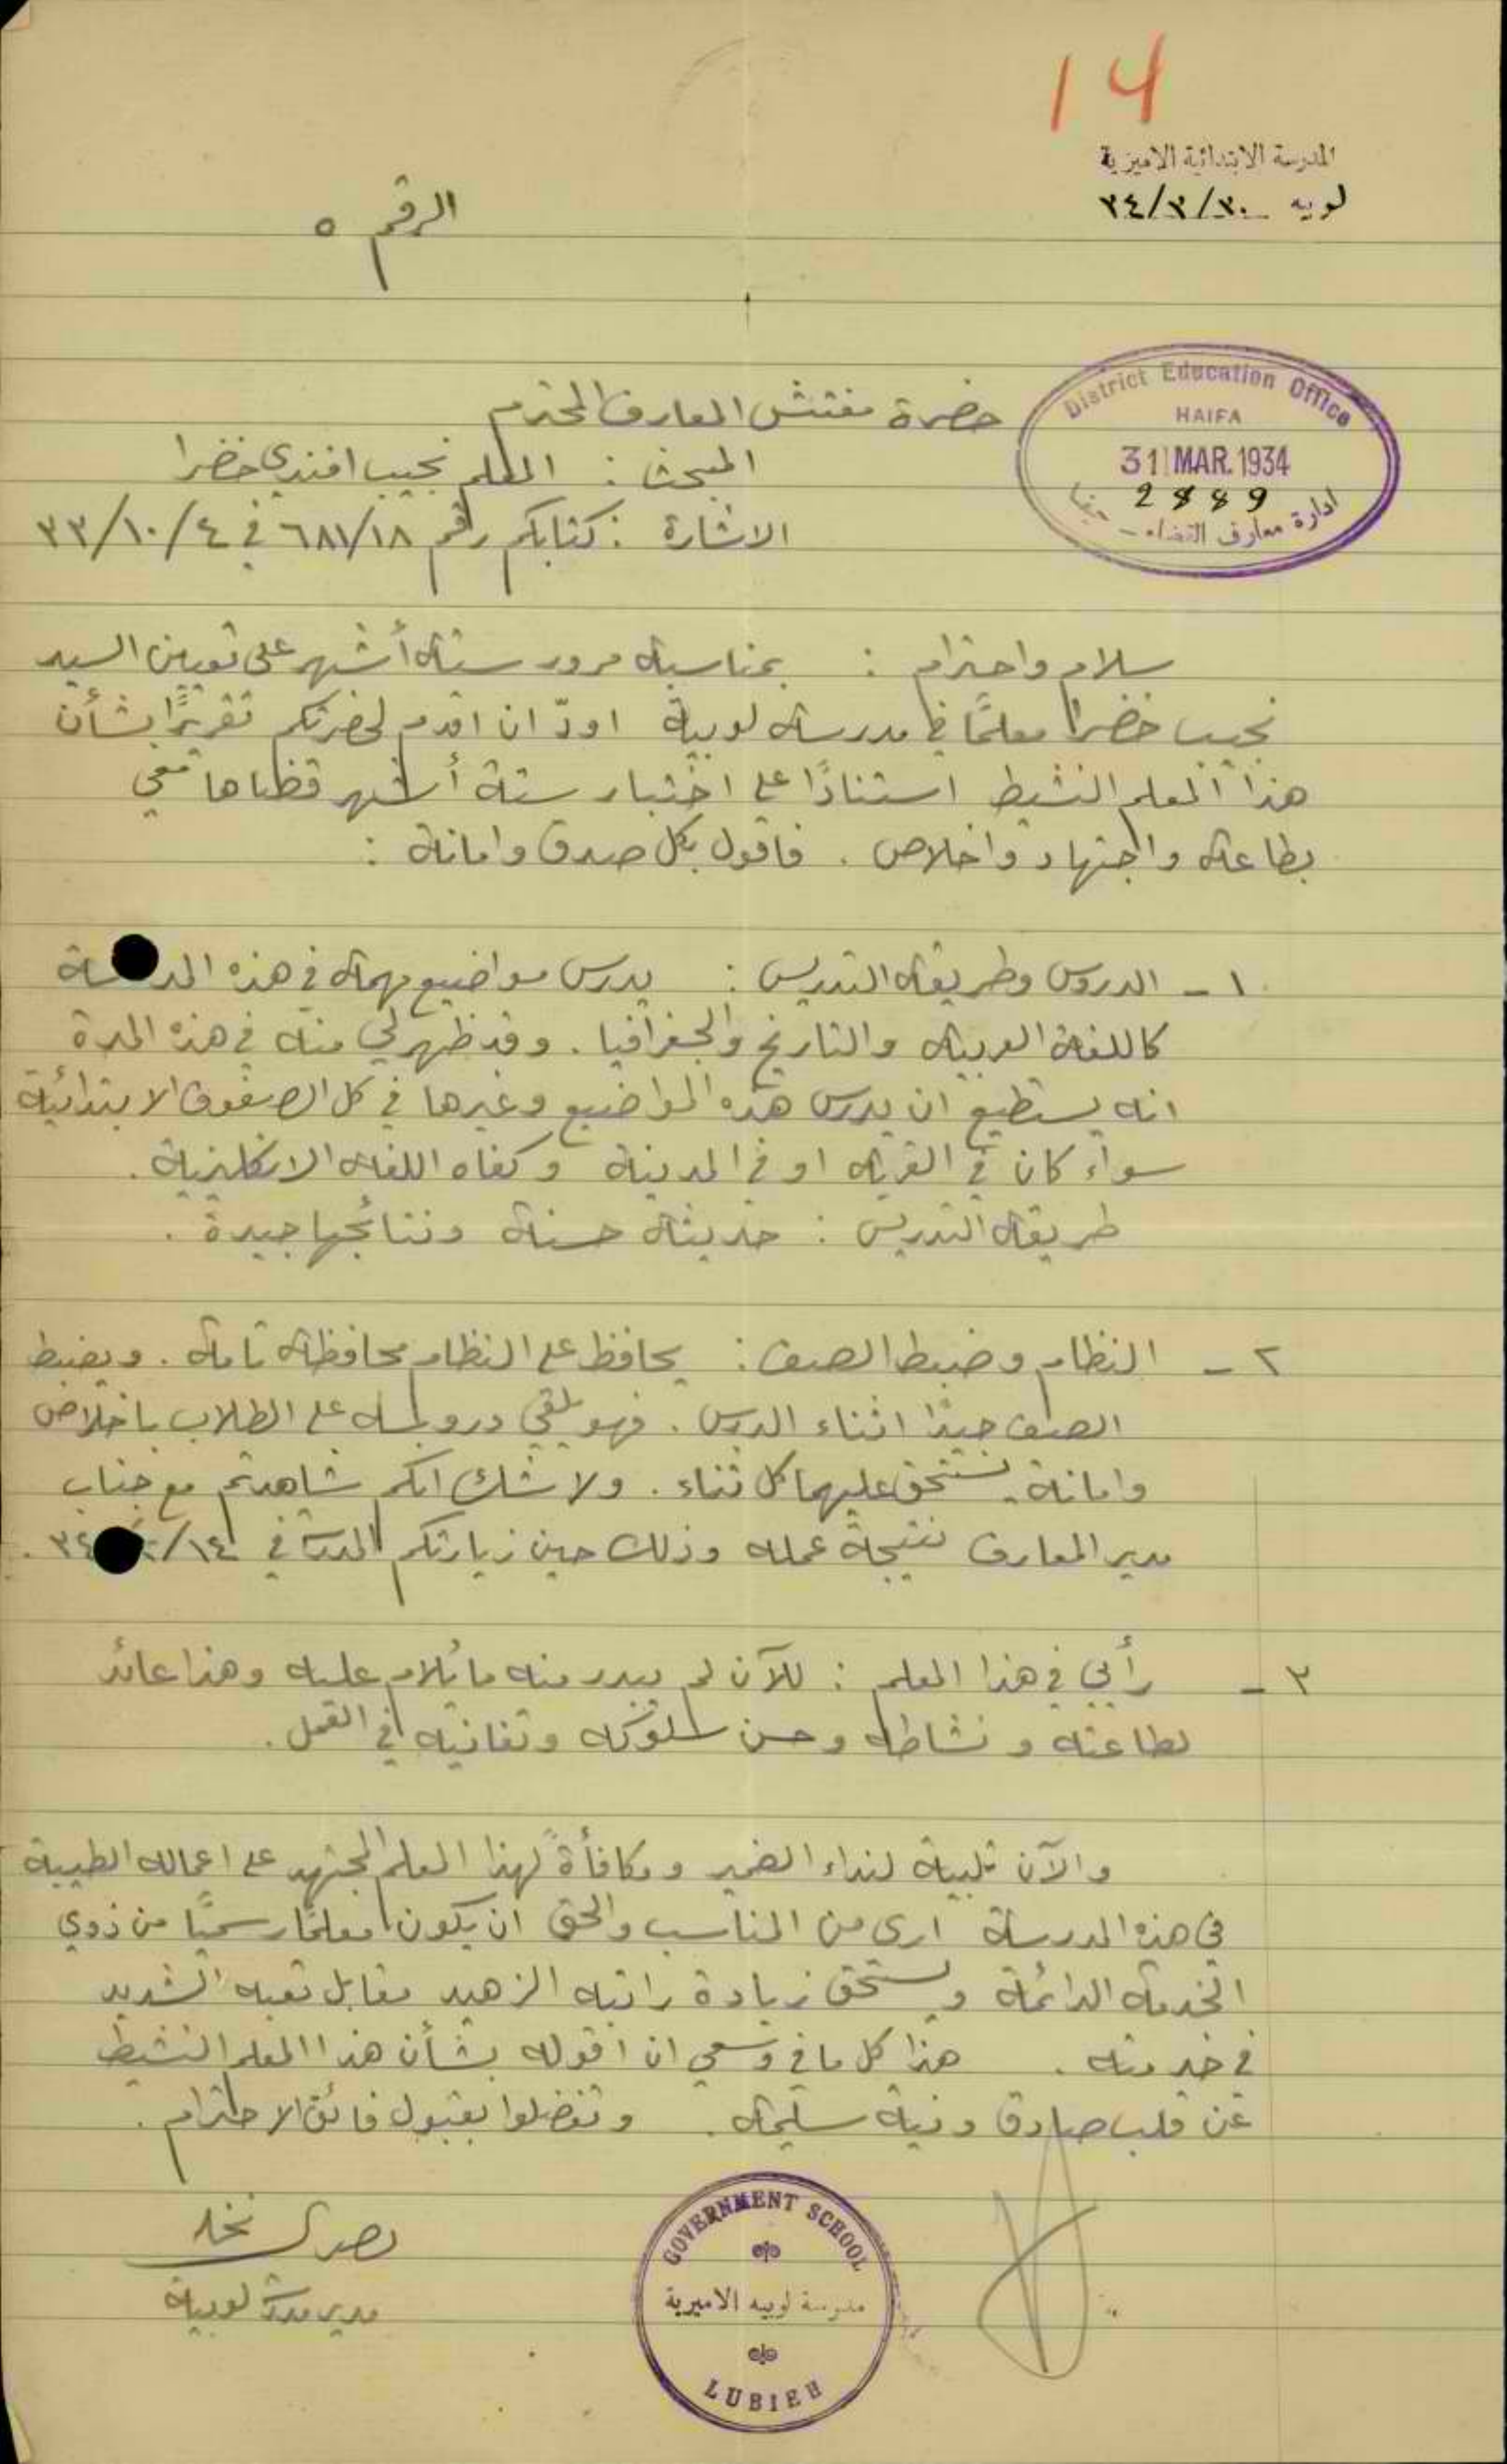 14
المدرسة الابتدائية الاميرية
لوبيه ٣٤/٣/٣٠
الرقم ٥
District Education Office
HAIFA
31 MAR. 1934
2889
ادارة معارف القضاء - حيفا
حضرة مفتش المعارف المحترم
المبحث : المعلم نجيب افندي خضرا
الاشارة : كتابكم رقم ٦٨١/١٨ في ٣٣/١٠/٤
سلام واحترام : بمناسبة مرور ستة أشهر على تعيين السيد
نجيب خضرا معلمًا في مدرسة لوبية اودّ ان اقدم لحضرتكم تقريرًا بشأن
هذا المعلم النشيط استنادًا على اختبار ستة أشهر قضاها معي
بطاعة واجتهاد واخلاص . فاقول بكل صدق وامانة :
١ - الدروس وطريقة التدريس : يدرس مواضيع مهمة في هذه المدرسة
كاللغة العربية والتاريخ والجغرافيا . وقد ظهر لي منه في هذه المدة
انه يستطيع ان يدرس هذه المواضيع وغيرها في كل الصفوف الابتدائية
سواء كان في القرية او في المدينة وكفاه اللغة الانكليزية .
طريقة التدريس : حديثة حسنة ونتائجها جيدة .
٢ - النظام وضبط الصف : يحافظ على النظام محافظة تامة . ويضبط
الصف جيدًا اثناء الدرس . فهو يلقي دروسه على الطلاب باخلاص
وامانة يستحق عليهما كل ثناء . ولا شك انكم شاهدتم مع جناب
مدير المعارف نتيجة عمله وذلك حين زيارتكم المدرسة في ١٤/ ٣٤ .
٣ - رأيي في هذا المعلم : للآن لم يبدر منه ما يُلام عليه وهذا عائد
لطاعته ونشاطه وحسن سلوكه وتفانيه في العمل .
والآن تلبية لنداء الضمير ومكافأةً لهذا المعلم المجتهد على اعماله الطيبة
في هذه المدرسة ارى من المناسب والحق ان يكون معلمًا رسميًا من ذوي
الخدمة الدائمة ويستحق زيادة راتبه الزهيد مقابل تعبه الشديد
في خدمته . هذا كل ما في وسعي ان اقوله بشأن هذا المعلم النشيط
عن قلب صادق ونية سليمة . وتفضلوا بقبول فائق الاحترام .
نخله
مدير مدرسة لوبية
GOVERNMENT SCHOOL
مدرسة لوبيه الاميرية
LUBIEH